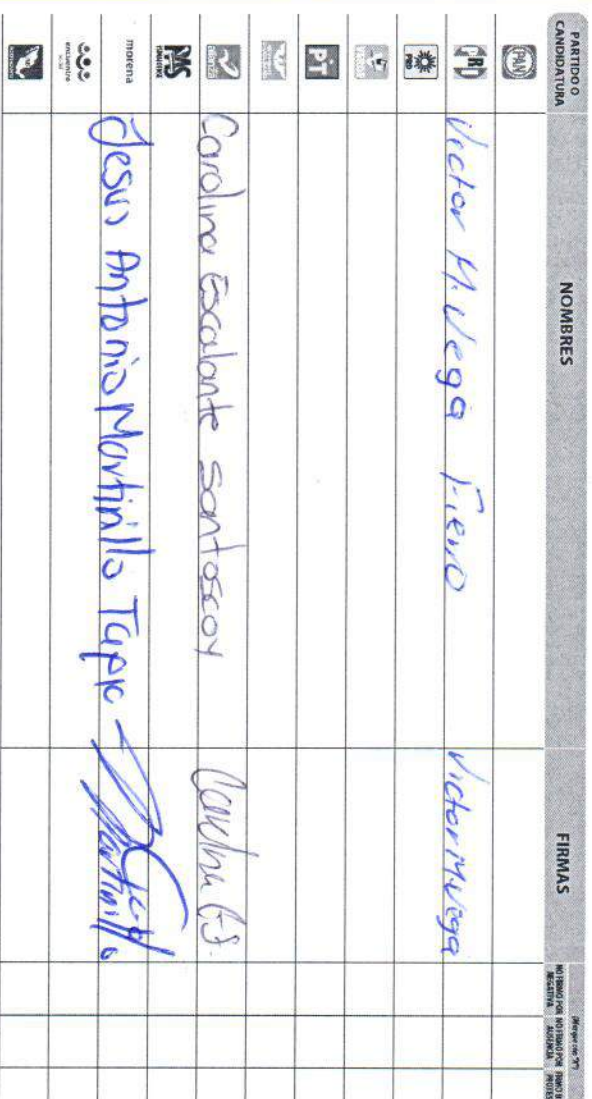 PARTIDO O CANDIDATURA
NOMBRES
FIRMAS
(Marque con "X")
NO FIRMÓ POR NEGATIVA
NO FIRMÓ POR AUSENCIA
PAN
PRI
Victor M. Vega Fierro
Victor M. Vega
PRD
PT
Carolina Escalante Santoscoy
PAS
morena
Jesus Antonio Martinillo Tapia
Martinillo
encuentro